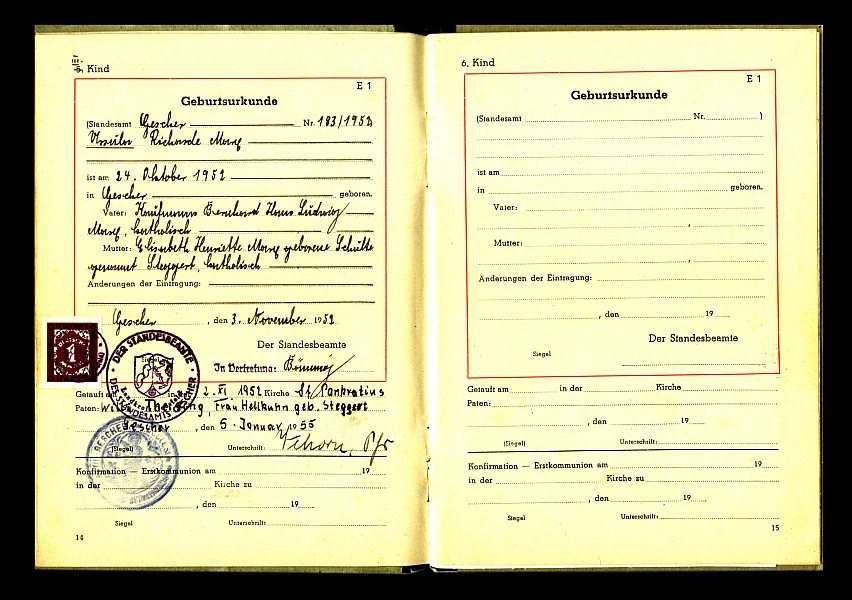 III
5. Kind
E 1
Geburtsurkunde
(Standesamt Gescher Nr. 183/1952)
Ursula Richarde
ist am 24. Oktober 1952
in Gescher geboren.
Vater: Kaufmann Bernhard Hans Ludwig
katholisch
Mutter: Elisabeth Henriette geborene Schulte
genannt Steggert, katholisch
Änderungen der Eintragung:
Gescher, den 3. November 1952
Der Standesbeamte
Siegel
In Vertretung:
DER STANDESBEAMTE
DES STANDESAMTS GESCHER
Getauft am 2. XI 1952 Kirche St. Pankratius
Paten: Frau Hellkuhn geb. Steggert
Gescher, den 5. Januar 1955
(Siegel) Unterschrift: Pfr
Konfirmation — Erstkommunion am 19
in der Kirche zu
, den 19
Siegel Unterschrift:
14
6. Kind
E 1
Geburtsurkunde
(Standesamt Nr. )
ist am
in geboren.
Vater:
,
Mutter:
,
Änderungen der Eintragung:
, den 19
Der Standesbeamte
Siegel
Getauft am in der Kirche
Paten:
, den 19
(Siegel) Unterschrift:
Konfirmation — Erstkommunion am 19
in der Kirche zu
, den 19
Siegel Unterschrift:
15